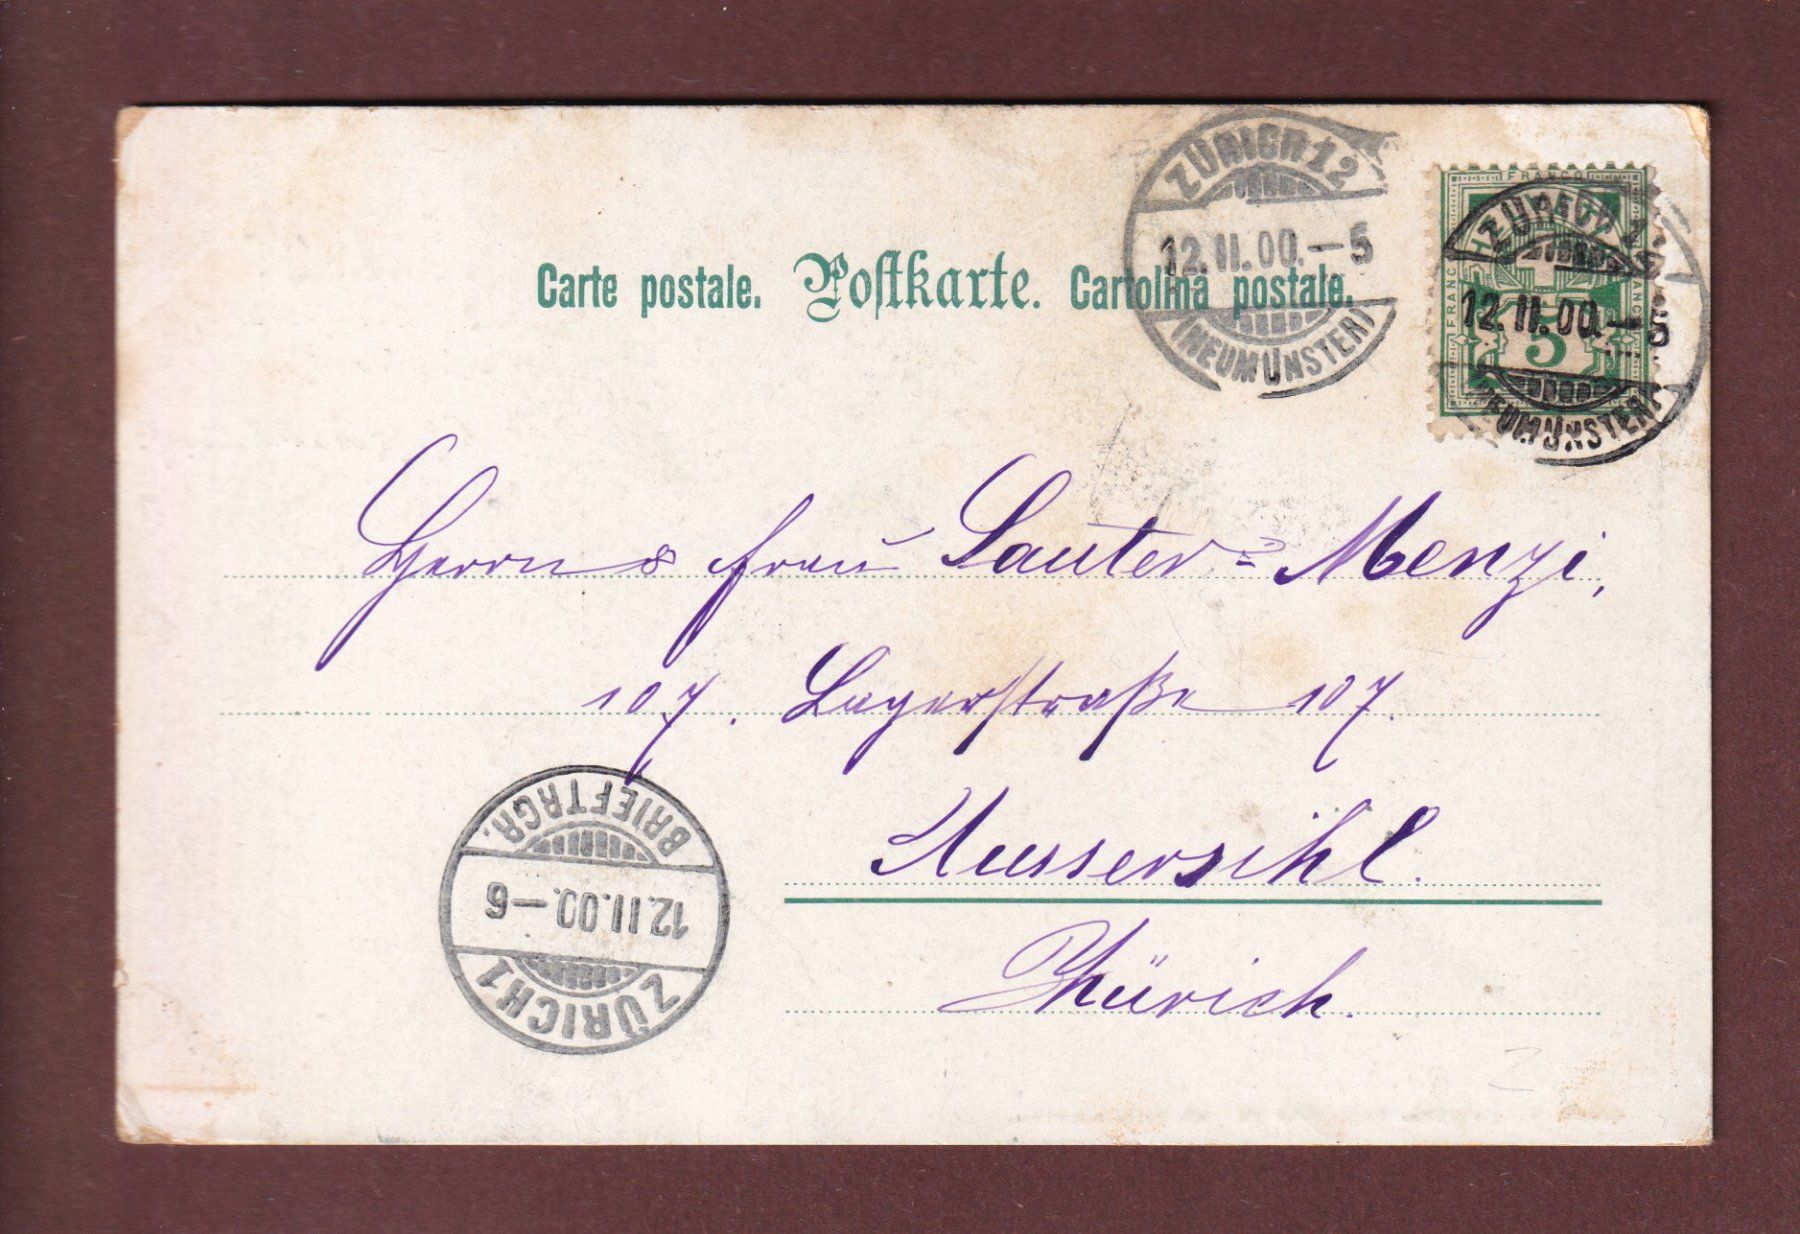 ZÜRICH 12
12.II.00.–5
(NEUMÜNSTER)
FRANCO
HELVETIA
FRANCO
FRANCO
5
12.II.00.–5
(NEUMÜNSTER)
Carte postale. Postkarte. Cartolina postale.
Herrn & Frau Sauter-Menzi,
107. Lagerstraße 107.
Aussersihl.
Zürich.
BRIEFTRGR.
12.II.00.–6
ZÜRICH 1